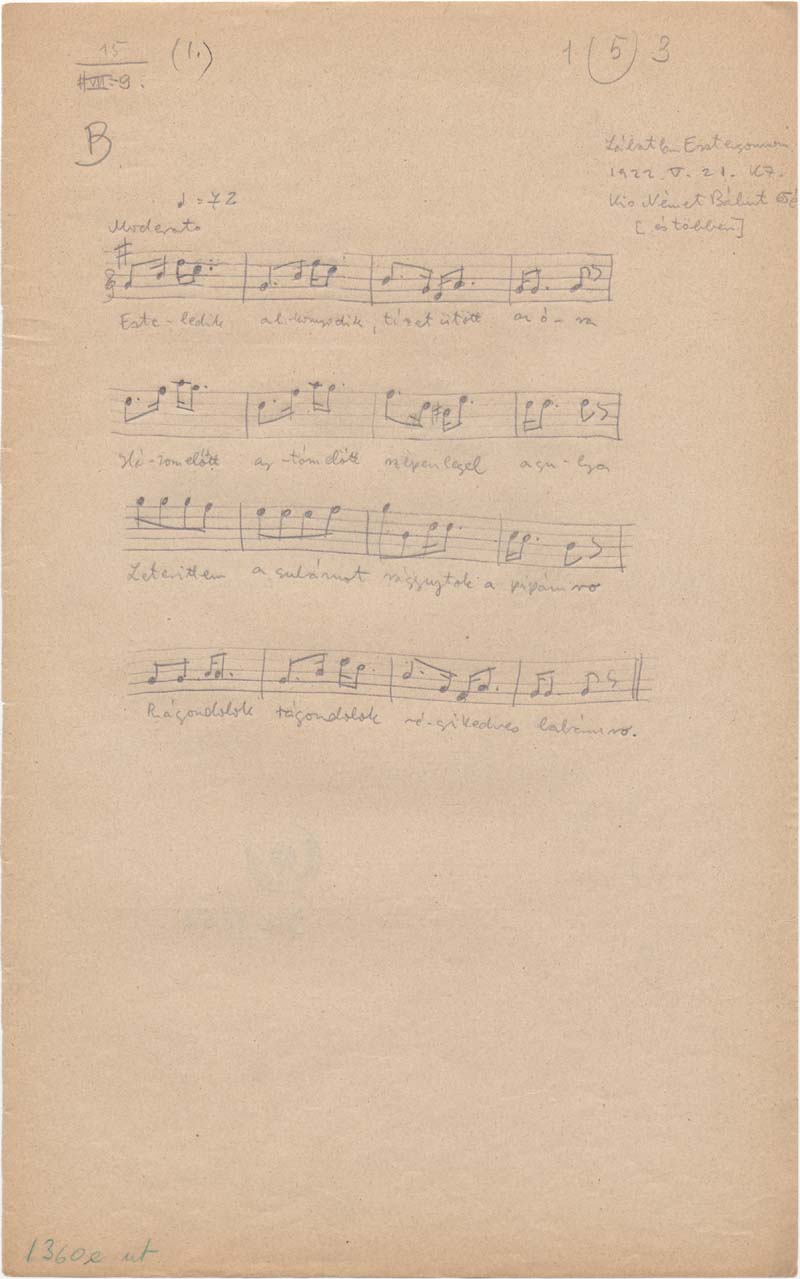 15 (1.) 1 5 3
VII-9.
B
Lábatlan Esztergom m
1922. V. 21. K Z.
Kis Német Bálint
[és többen]
♩ = 72
Moderato
Este-ledik al-konyodik, tizet ütött az ó-ra
Há-zom előtt az-tóm előtt szépen legel a gu-lya
Leterittem a subámot rá
Rágondolok rágondolok ré-gi kedves babámro.
1360e ut